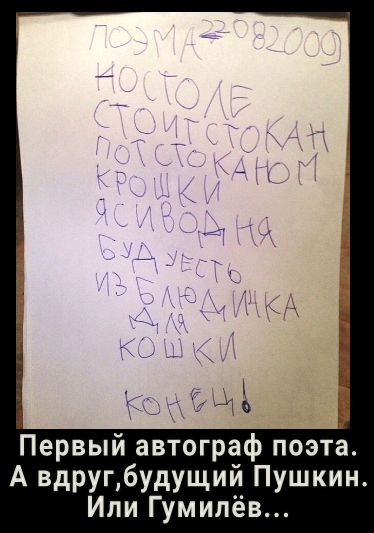 ПОЭМА 22082009
НОСТОЛЕ
СТОИТ СТОКАН
ПОТ СТОКАНОМ
КРОШКИ
ЯСИВОДНЯ
БУДУЕСТЬ
ИЗ БЛЮДИЧКА
ДЛЯ
КОШКИ
КОНЕЦ!
Первый автограф поэта.
А вдруг,будущий Пушкин.
Или Гумилёв...